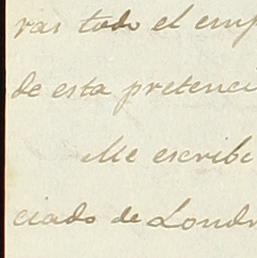 ras todo el emp
de esta pretenci
Me escribe
ciado de Londr